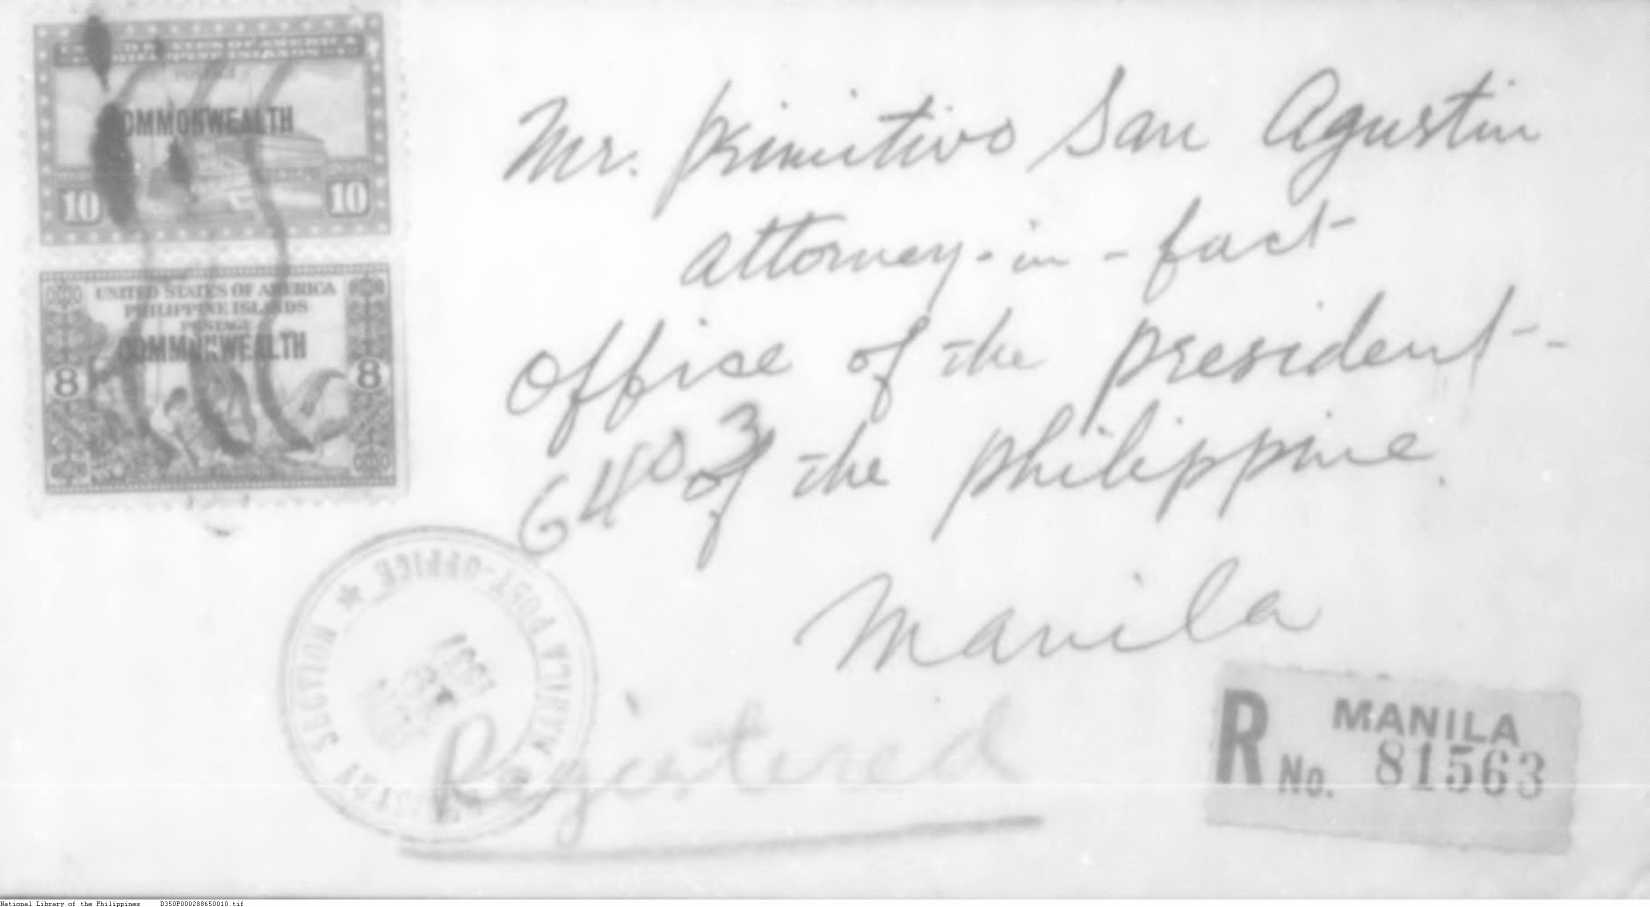 UNITED STATES OF AMERICA
PHILIPPINE ISLANDS
POSTAGE
COMMONWEALTH
10 10
UNITED STATES OF AMERICA
PHILIPPINE ISLANDS
POSTAGE
COMMONWEALTH
8 8
Mr. Primitivo San Agustin
Attorney-in-fact
Office of the President-
of the Philippine.
6403
Manila
MANILA POST-OFFICE ★ REGISTRY SECTION
1937
Registered
R MANILA
No. 81563
National Library of the Philippines D350P000288650010.tif